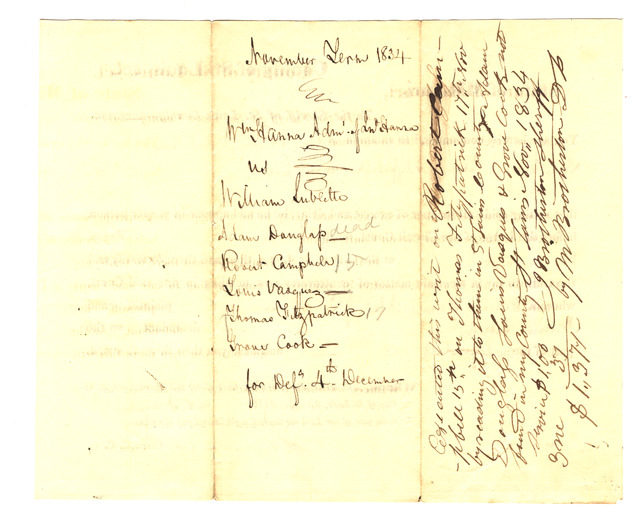 November Term 1834
Wm Hanna Admr. of Jno Hanna
vs
William Sublette
Adam Douglass — dead
Robert Campbell 15
Louis Vasquez —
Thomas Fitzpatrick 17
Grove Cook —
for Deft. 4th December
Executed this writ on Robert Cam-
pbell 15th on Thomas Fitzpatrick 17th Nov
by reading it to them in St Louis County
Douglass Louis Vasquez & Grove Cook not
found in my County St Louis Nov. 1834
Service $1,00 Brotherton Sheriff
3 ne 37 by M Brotherton D S
$1,37½